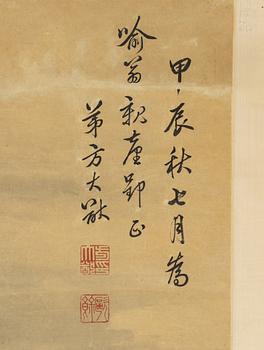 甲辰秋七月為
喻翁親臺郢正
弟方大猷